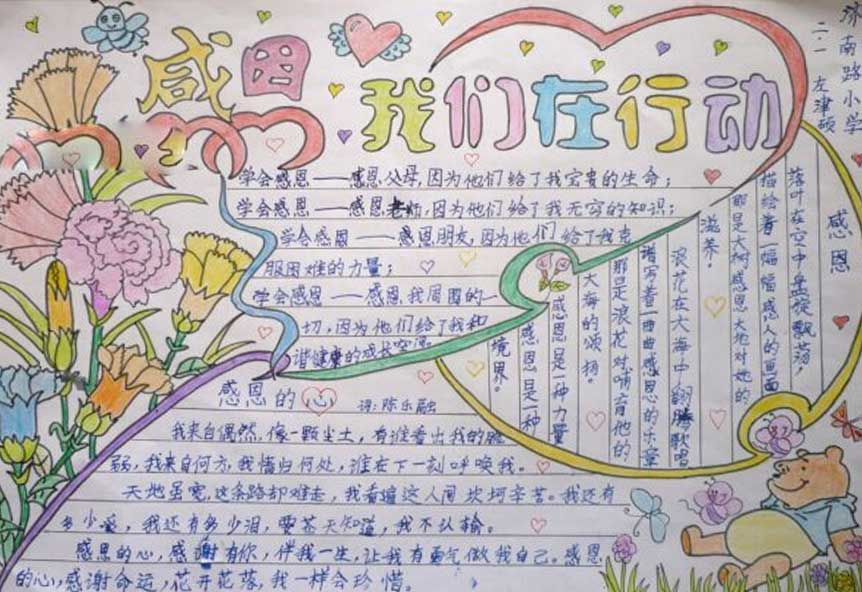 感恩
我们在行动
济南路小学
二.一 左津硕
学会感恩——感恩父母,因为他们给了我宝贵的生命；
学会感恩——感恩老师,因为他们给了我无穷的知识；
学会感恩——感恩朋友,因为他们给了我克
服困难的力量；
学会感恩——感恩我周围的一
切,因为他们给了我和
谐健康的成长空间
感恩
落叶在空中盘旋飘荡,
描绘着一幅幅感人的画面
那是大树感恩大地对她的
滋养。
浪花在大海中翻腾歌唱
谱写着一曲曲感恩的乐章
那是浪花对哺育他的
大海的颂扬。
感恩是一种力量
感恩是一种
境界。
感恩的心
词:陈乐融
我来自偶然,像一颗尘土,有谁看出我的脆
弱,我来自何方,我情归何处,谁在下一刻呼唤我。
天地虽宽,这条路却难走,我看遍这人间坎坷辛苦。我还有
多少爱,我还有多少泪,要苍天知道,我不认输。
感恩的心,感谢有你,伴我一生,让我有勇气做我自己。感恩
的心,感谢命运,花开花落,我一样会珍惜。